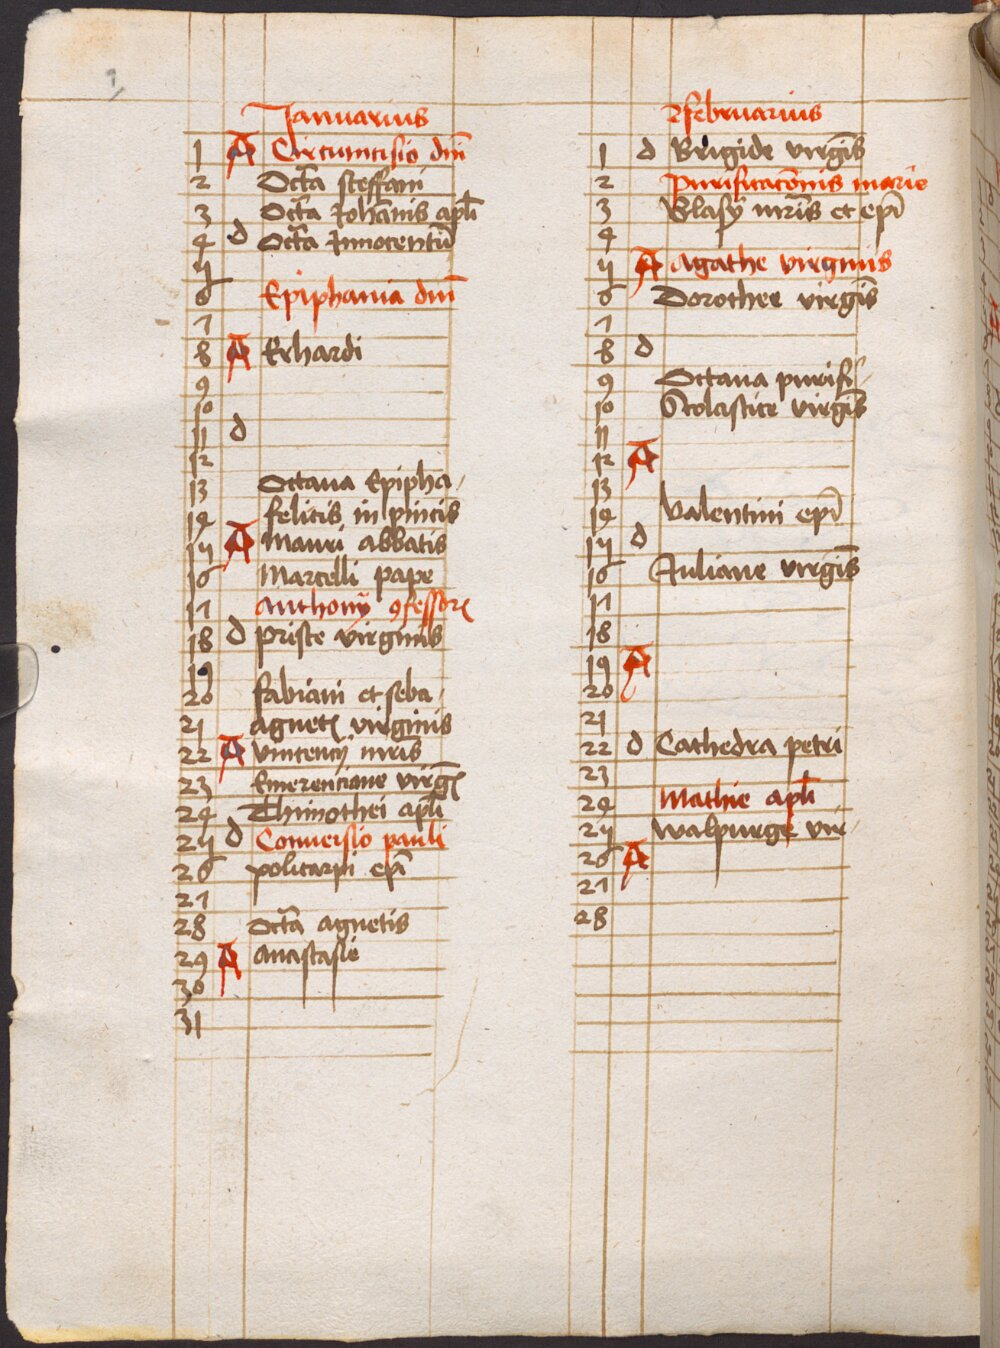 Januarius
1 A Circumcisio dni
2 Octa steffani
3 Octa Johanis apli
4 d Octa Innocentu
5
6 Epiphania dni
7
8 A Erhardi
9
10
11 d
12
13 Octaua Epipha
14 felicis in pincis
15 A Mauri abbatis
16 Marcelli pape
17 Anthony 9fessor
18 d prisce virginis
19
20 fabiani et seba
21 agnet virginis
22 A vincency mris
23 Emerenciane virg
24 Thimothei apli
25 d Conuersio pauli
26 policarpi epi
27
28 Octa agnetis
29 A Anastasie
30
31
Februarius
1 d Brigide virgis
2 purificaconis marie
3 Blasy mris et epi
4
5 A Agathe virginis
6 Dorothee virgis
7
8 d
9 Octaua purifi
10 Scolastice virgis
11
12 A
13
14 valentini epi
15 d
16 Juliane virgis
17
18
19 A
20
21
22 d Cathedra petri
23
24 Mathie apli
25 walpurge vir
26 A
27
28